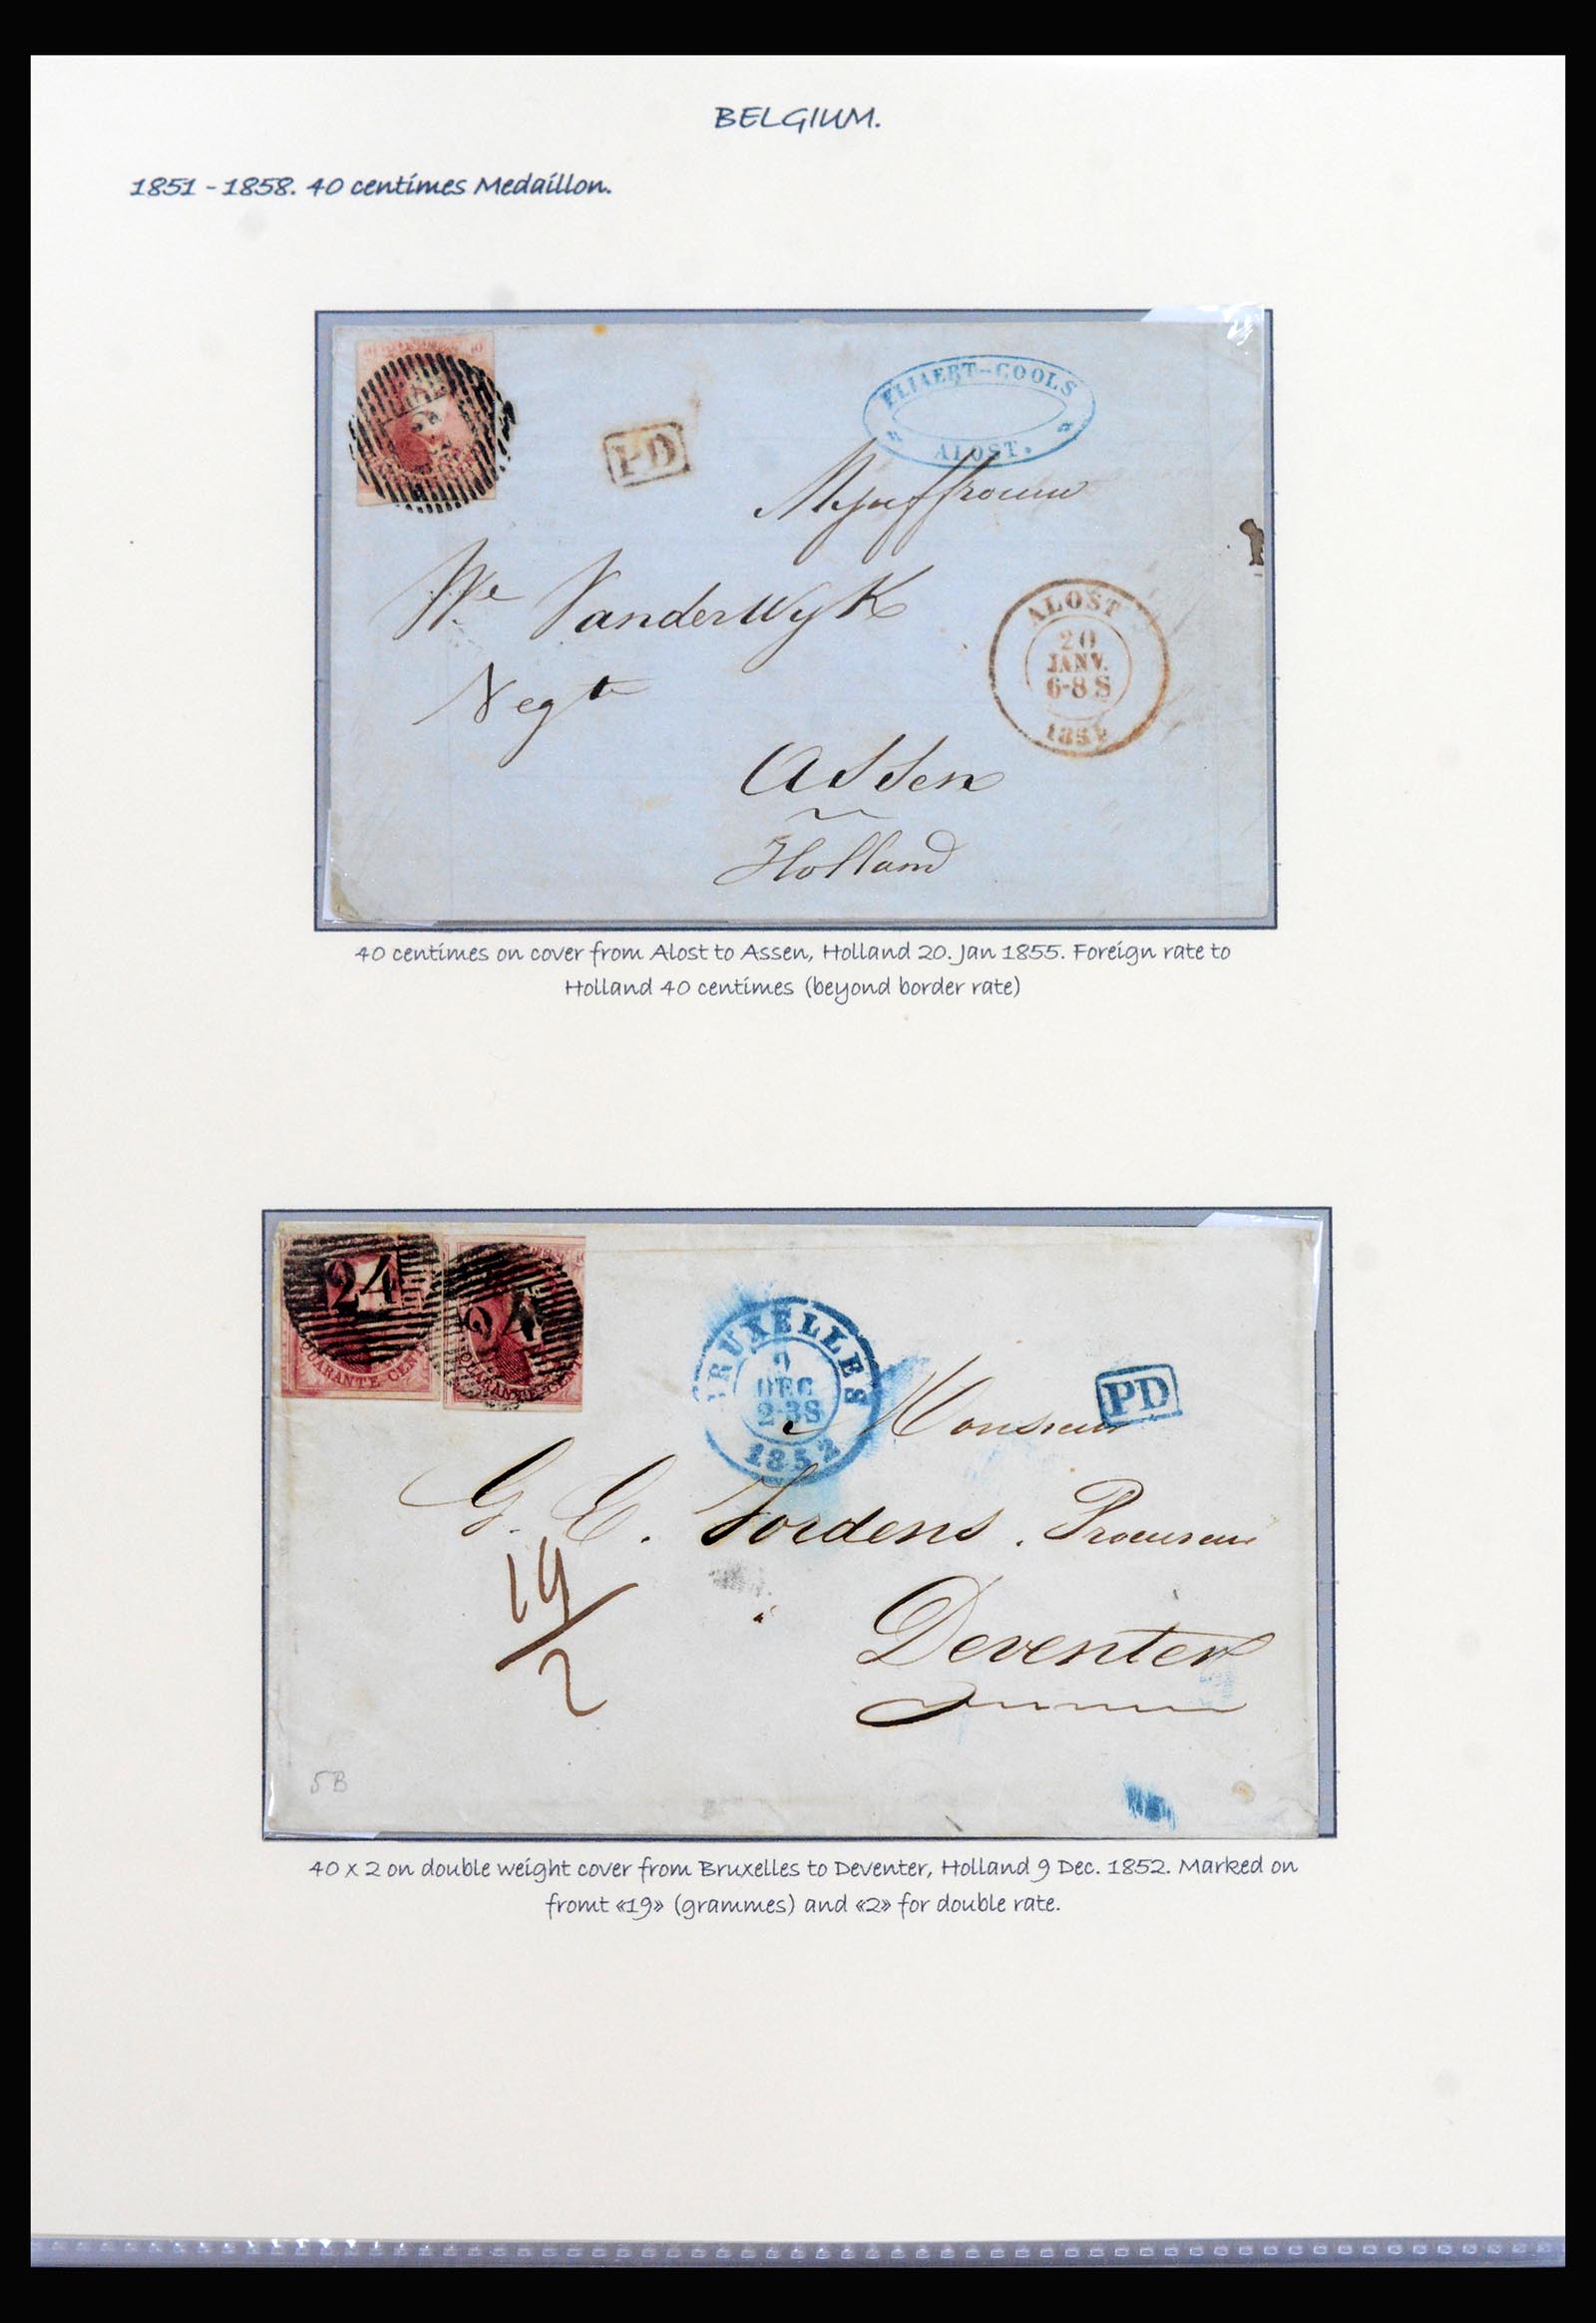 BELGIUM.
1851 - 1858. 40 centimes Medaillon.
ELIAERT-COOLS
ALOST.
PD
Mejuffrouw
We VanderWyk
Negte
ALOST
20
JANV.
6-8 S
Assen
Holland
40 centimes on cover from Alost to Assen, Holland 20. Jan 1855. Foreign rate to
Holland 40 centimes (beyond border rate)
24
24
QUARANTE CEN
QUARANTE CEN
BRUXELLES
9
DEC
2-3S
1852
PD
Monsieur
G. E. Jordens. Procureur
19
2
Deventer
5B
40 x 2 on double weight cover from Bruxelles to Deventer, Holland 9 Dec. 1852. Marked on
fromt «19» (grammes) and «2» for double rate.